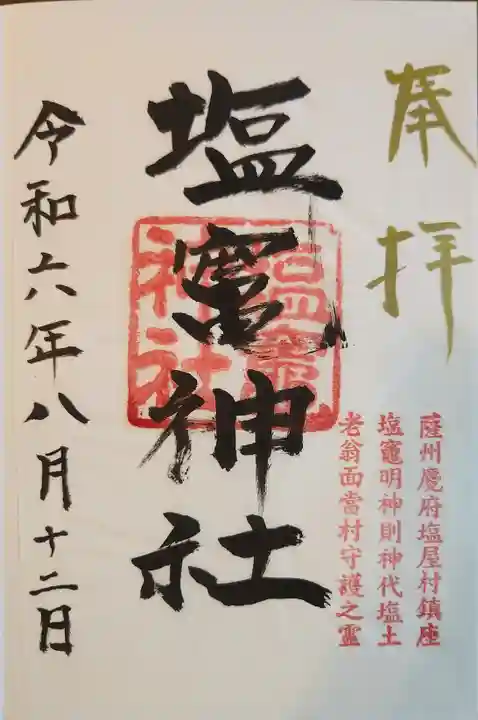 奉拝
薩州麑府塩屋村鎮座
塩竈明神則神代塩土
老翁面當村守護之霊
塩竃神社
塩竈神社
令和六年八月十二日